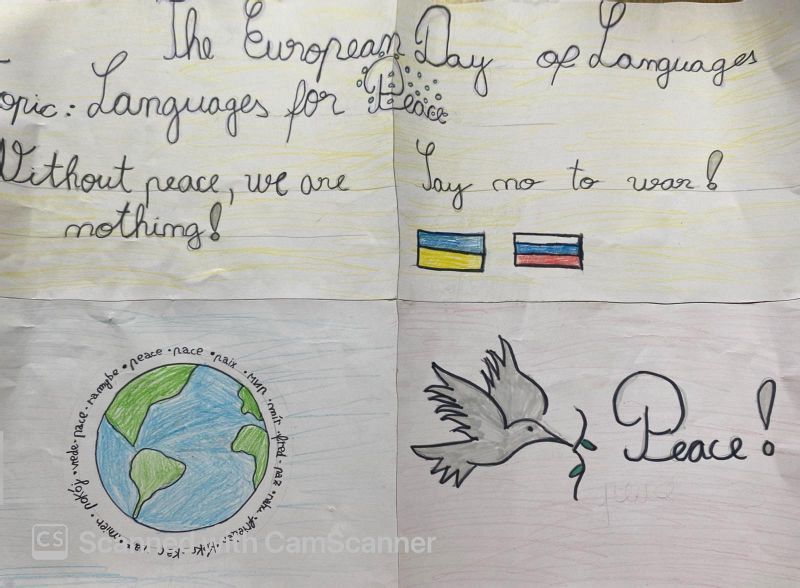 The European Day of Languages
opic: Languages for Peace
Without peace, we are
nothing!
Say no to war!
peace • pace • paix • мир • mír
pace • vede • pokój
Peace!
CS Scanned with CamScanner